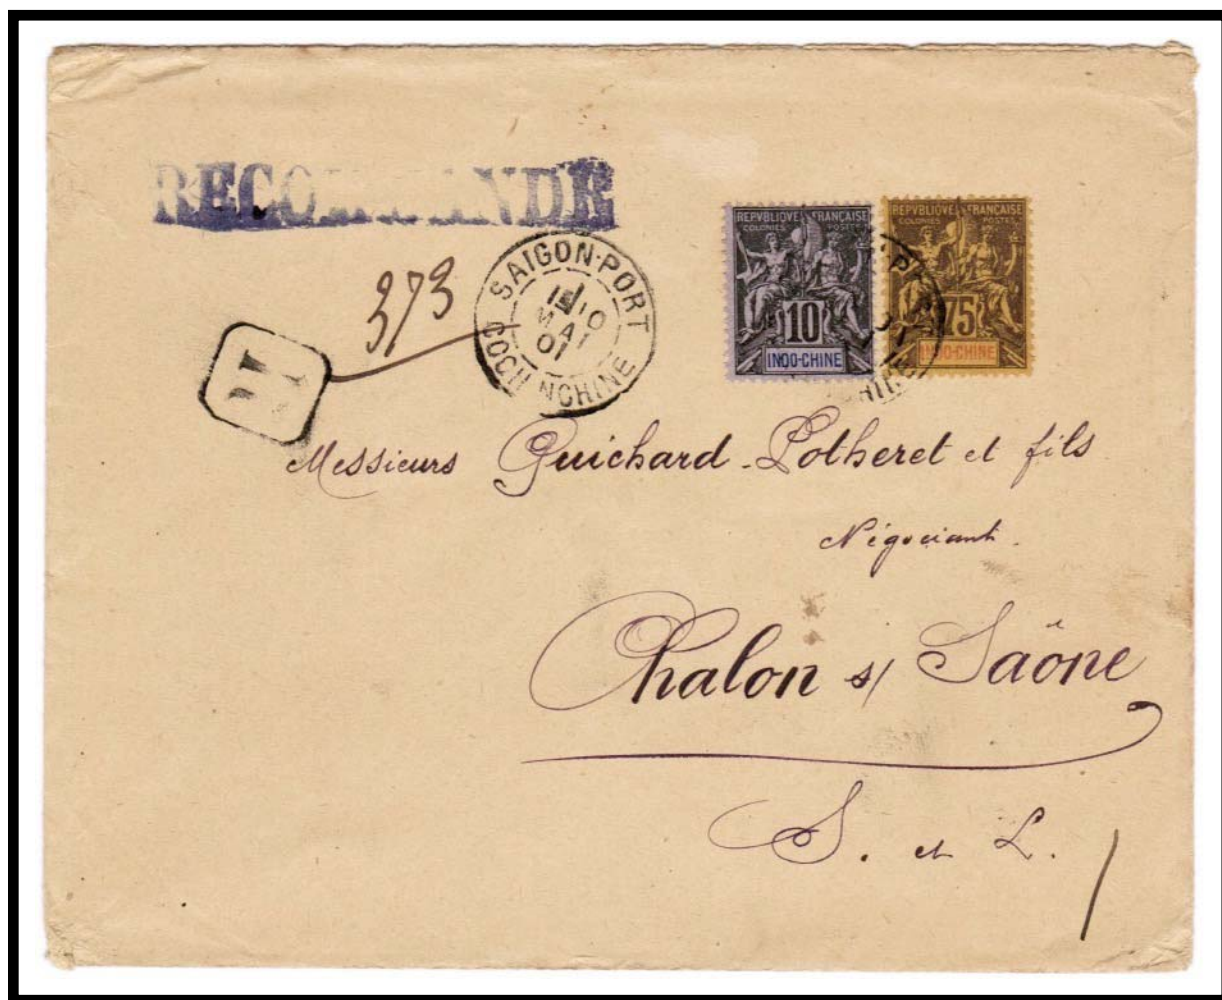 RECOMMANDE
373
R
SAIGON-PORT
10
MAI
01
COCHINCHINE
REPVBLIQVE FRANÇAISE
COLONIES POSTES
10
INDO-CHINE
REPVBLIQVE FRANÇAISE
COLONIES POSTES
75
INDO-CHINE
Messieurs Guichard-Potheret et fils
Négociant.
Chalon s/ Saône
S. et L.